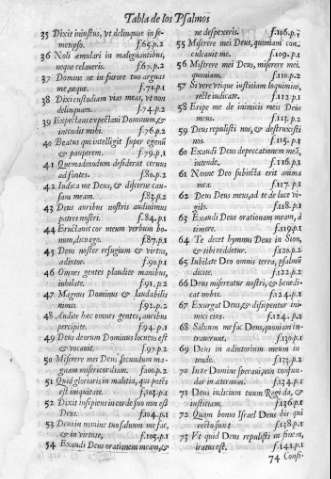 Tabla de los Psalmos
35 Dixit iniustus, vt delinquat in se-
metipso. f.65.p.2
36 Noli æmulari in malignantibus,
neque zelaueris. f.67.p.2
37 Domine ne in furore tuo arguas
me, neque. f.71.p.1
38 Dixi custodiam vias meas, vt non
delinquam. f.74.p.2
39 Expectans expectaui Dominum, &
intendit mihi. f.76.p.2
40 Beatus qui intelligit super egenũ
& pauperem. f.79.p.1
41 Quemadmodum desiderat ceruus
ad fontes. f.80.p.2
42 Iudica me Deus, & discerne cau-
sam meam. f.83.p.2
43 Deus auribus nostris audiuimus
patres nostri. f.84.p.1
44 Eructauit cor meum verbum bo-
num, dico ego. f.87.p.1
45 Deus noster refugium & virtus,
adiutor. f.90.p.1
46 Omnes gentes plaudite manibus,
iubilate. f.91.p.2
47 Magnus Dominus & laudabilis
nimis. f.92.p.2
48 Audite hæc omnes gentes, auribus
percipite. f.94.p.1
49 Deus deorum Dominus locutus est
& vocauit. f.97.p.2
50 Miserere mei Deus secundum ma-
gnam misericordiam. f.100.p.2
51 Quid gloriaris in malitia, qui potẽs
est iniquitate. f.103.p.1
52 Dixit insipiens in corde suo non est
Deus. f.104.p.1
53 Deus in nomine tuo saluum me fac,
& in virtute. f.105.p.1
54 Exaudi Deus orationem meam, &
ne despexeris. f.106.p.1
55 Miserere mei Deus, quoniam con-
culcauit. f.108.p.1
56 Miserere mei Deus, miserere mei.
quoniam. f.110.p.2
57 Si vere vtique iustitiam loquimini,
recte iudicate. f.112.p.1
58 Eripe me de inimicis meis Deus
meus. f.113.p.2
59 Deus repulisti nos, & destruxisti
nos. f.115.p.1
60 Exaudi Deus deprecationem meã,
intende. f.116.p.1
61 Nonne Deo subiecta erit anima
mea. f.117.p.1
62 Deus Deus meus, ad te de luce vi-
gilo. f.118.p.1
63 Exaudi Deus orationem meam, à
timore. f.119.p.1
64 Te decet hymnus Deus in Sion,
& tibi reddetur. f.120.p.1
65 Iubilate Deo omnis terra, psalmũ
dicite. f.122.p.2
66 Deus misereatur nostri, & bene di-
cat nobis. f.124.p.1
67 Exurgat Deus, & dissipentur ini-
mici eius. f.124.p.1
68 Saluum me fac Deus, quoniam in-
trauerunt. f.130.p.1
69 Deus in adiutorium meum in-
tende. f.133.p.2
70 In te Domine speraui, non confun-
dar in æternum. f.134.p.1
71 Deus iudicium tuum Regi da, &
iustitiam. f.136.p.1
72 Quam bonus Israel Deus his qui
recto sunt f.138.p.1
73 Vt quid Deus repulisti in finem,
iratus est. f.141.p.1
74 Confi-